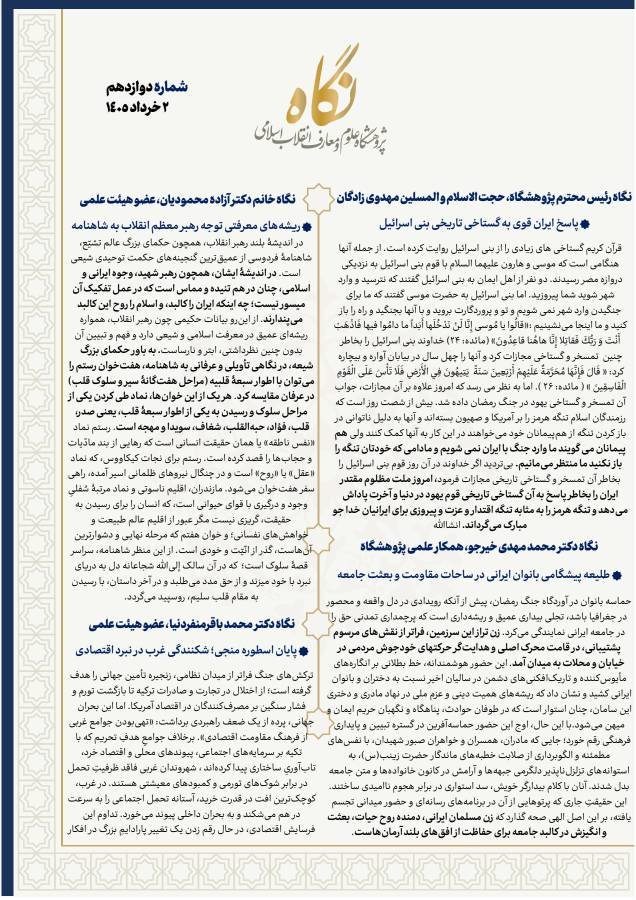 نگاه
پژوهشگاه علوم و معارف انقلاب اسلامی
شماره دوازدهم
۲ خرداد ۱۴۰۵
نگاه رئیس محترم پژوهشگاه، حجت الاسلام و المسلین مهدوی زادگان
پاسخ ایران قوی به گستاخی تاریخی بنی اسرائیل
قرآن کریم گستاخی های زیادی را از بنی اسرائیل روایت کرده است. از جمله آنها
هنگامی است که موسی و هارون علیهما السلام با قوم بنی اسرائیل به نزدیکی
دروازه مصر رسیدند. دو نفر از اهل ایمان به بنی اسرائیل گفتند که نترسید و وارد
شهر شوید شما پیروزید. اما بنی اسرائیل به حضرت موسی گفتند که ما برای
جنگیدن وارد شهر نمی شویم و تو و پروردگارت بروید و با آنها بجنگید و راه را باز
کنید و ما اینجا می‌نشینیم :«قالُوا يا مُوسى إِنَّا لَنْ نَدْخُلَها أَبَداً ما دامُوا فيها فَاذْهَبْ
أَنْتَ وَ رَبُّكَ فَقاتِلا إِنَّا هاهُنا قاعِدُونَ» (مائده: ۲۴) خداوند بنی اسرائیل را بخاطر
چنین تمسخر و گستاخی مجازات کرد و آنها را چهل سال در بیابان آواره و بیچاره
کرد: « قالَ فَإِنَّها مُحَرَّمَةٌ عَلَيْهِمْ أَرْبَعينَ سَنَةً يَتيهُونَ فِي الْأَرْضِ فَلا تَأْسَ عَلَى الْقَوْمِ
الْفاسِقينَ » ( مائده: ۲۶ ). اما به نظر می رسد که امروز علاوه بر آن مجازات، جواب
آن تمسخر و گستاخی یهود در جنگ رمضان داده شد. بیش از شصت روز است که
رزمندگان اسلام تنگه هرمز را بر آمریکا و صهیون بسته‌اند و آنها به دلیل ناتوانی در
باز کردن تنگه از هم‌پیمانان خود می‌خواهند در این کار به آنها کمک کنند ولی هم
پیمانان می گویند ما وارد جنگ با ایران نمی شویم و مادامی که خودتان تنگه را
باز نکنید ما منتظر می‌مانیم. بی‌تردید اگر خداوند در آن روز قوم بنی اسرائیل را
بخاطر آن تمسخر و گستاخی تاریخی مجازات فرمود، امروز ملت مظلوم مقتدر
ایران را بخاطر پاسخ به آن گستاخی تاریخی قوم یهود در دنیا و آخرت پاداش
می‌دهد و تنگه هرمز را به مثابه تنگه اقتدار و عزت و پیروزی برای ایرانیان خدا جو
مبارک می‌گرداند. انشاالله
نگاه دکتر محمد مهدی خیرجو، همکار علمی پژوهشگاه
طلیعه پیشگامی بانوان ایرانی در ساحات مقاومت و بعثت جامعه
حماسه بانوان در آوردگاه جنگ رمضان، پیش از آنکه رویدادی در دل واقعه و محصور
در جغرافیا باشد، تجلی بیداری عمیق و ریشه‌داری است که پرچمداری تمدنی حق را
در جامعه ایرانی نمایندگی می‌کرد. زن تراز این سرزمین، فراتر از نقش‌های مرسوم
پشتیبانی، در قامت محرک اصلی و هدایت‌گر حرکتهای خودجوش مردمی در
خیابان و محلات به میدان آمد. این حضور هوشمندانه، خط بطلانی بر انگاره‌های
مأیوس‌کننده و تاریک‌افکنی‌های دشمن در سالیان اخیر نسبت به دختران و بانوان
ایرانی کشید و نشان داد که ریشه‌های همیت دینی و عزم ملی در نهاد مادری و دختری
این سامان، چنان استوار است که در طوفان حوادث، پناهگاه و نگهبان حریم ایمان و
میهن می‌شود.با این حال، اوج این حضور حماسه‌آفرین در گستره تبیین و پایداری
فرهنگی رقم خورد؛ جایی که مادران، همسران و خواهران صبور شهیدان، با نفس‌های
مطمئنه و الگوبرداری از صلابت خطبه‌های ماندگار حضرت زینب(س)، به
استوانه‌های تزلزل‌ناپذیر دلگرمی جبهه‌ها و آرامش در کانون خانواده‌ها و متن جامعه
بدل شدند. آنان با کلام بیدارگر خویش، سد استواری در برابر هجوم ناامیدی ساختند.
این حقیقتِ جاری که پرتوهایی از آن در برنامه‌های رسانه‌ای و حضور میدانی تجسم
یافته، بر این اصل الهی صحه گذارد که زن مسلمان ایرانی، دمنده روح حیات، بعثت
و انگیزش در کالبد جامعه برای حفاظت از افق‌های بلند آرمان‌هاست.
نگاه خانم دکتر آزاده محمودیان، عضو هیئت علمی
ریشه‌های معرفتی توجه رهبر معظم انقلاب به شاهنامه
در اندیشهٔ بلند رهبر انقلاب، همچون حکمای بزرگ عالم تشیّع،
شاهنامهٔ فردوسی از عمیق‌ترین گنجینه‌های حکمت توحیدی شیعی
است. در اندیشهٔ ایشان، همچون رهبر شهید، وجوه ایرانی و
اسلامی، چنان در هم تنیده و مماس است که در عمل تفکیک آن
میسور نیست؛ چه اینکه ایران را کالبد، و اسلام را روح این کالبد
می‌پندارند. از این‌رو بیانات حکیمی چون رهبر انقلاب، همواره
ریشه‌ای عمیق در معرفت اسلامی و شیعی دارد و فهم و تبیین آن
بدون چنین نظرداشتی، ابتر و نارساست. به باور حکمای بزرگ
شیعه، در نگاهی تأویلی و عرفانی به شاهنامه، هفت‌خوان رستم را
می‌توان با اطوار سبعهٔ قلبیه (مراحل هفت‌گانهٔ سیر و سلوک قلب)
در عرفان مقایسه کرد. هر یک از این خوان‌ها، نماد طی کردن یکی از
مراحل سلوک و رسیدن به یکی از اطوار سبعهٔ قلب، یعنی صدر،
قلب، فؤاد، حبةالقلب، شغاف، سویدا و مهجه است. رستم نماد
«نفس ناطقه» یا همان حقیقت انسانی است که رهایی از بند مادّیات
و حجاب‌ها را قصد کرده است. رستم برای نجات کیکاووس، که نماد
«عقل» یا «روح» است و در چنگال نیروهای ظلمانی اسیر آمده، راهی
سفر هفت‌خوان می‌شود. مازندران، اقلیم ناسوتی و نماد مرتبهٔ سُفلیِ
وجود و درگیری با قوای حیوانی است، که انسان را برای رسیدن به
حقیقت، گریزی نیست مگر عبور از اقلیم عالم طبیعت و
خواهش‌های نفسانی؛ و خوان هفتم که مرحله نهایی و دشوارترین
آن‌هاست، گذر از انّیّت و خودی است. از این منظر شاهنامه، سراسر
قصهٔ سلوک است؛ که در آن سالک إلی‌الله شجاعانه دل به دریای
نبرد با خود میزند و از حق مدد می‌طلبد و در آخر داستان، با رسیدن
به مقام قلب سلیم، روسپید می‌گردد.
نگاه دکتر محمد باقر منفردنیا ، عضو هیئت علمی
پایان اسطوره منجی؛ شکنندگی غرب در نبرد اقتصادی
ترکش‌های جنگ فراتر از میدان نظامی، زنجیره تأمین جهانی را هدف
گرفته است؛ از اختلال در تجارت و صادرات ترکیه تا بازگشت تورم و
فشار سنگین بر مصرف‌کنندگان در اقتصاد آمریکا. اما این بحران
جهانی، پرده از یک ضعف راهبردی برداشت: «تهی‌بودن جوامع غربی
از فرهنگ مقاومت اقتصادی». برخلاف جوامع هدفِ تحریم که با
تکیه بر سرمایه‌های اجتماعی، پیوندهای محلی و اقتصاد خرد،
تاب‌آوری ساختاری پیدا کرده‌اند ، شهروندان غربی فاقد ظرفیتِ تحمل
در برابر شوک‌های تورمی و کمبودهای معیشتی هستند. در غرب،
کوچک‌ترین افت در قدرت خرید، آستانه تحمل اجتماعی را به سرعت
در هم می‌شکند و به بحران داخلی پیوند می‌خورد. تداوم این
فرسایش اقتصادی، در حال رقم زدن یک تغییر پارادایمِ بزرگ در افکار